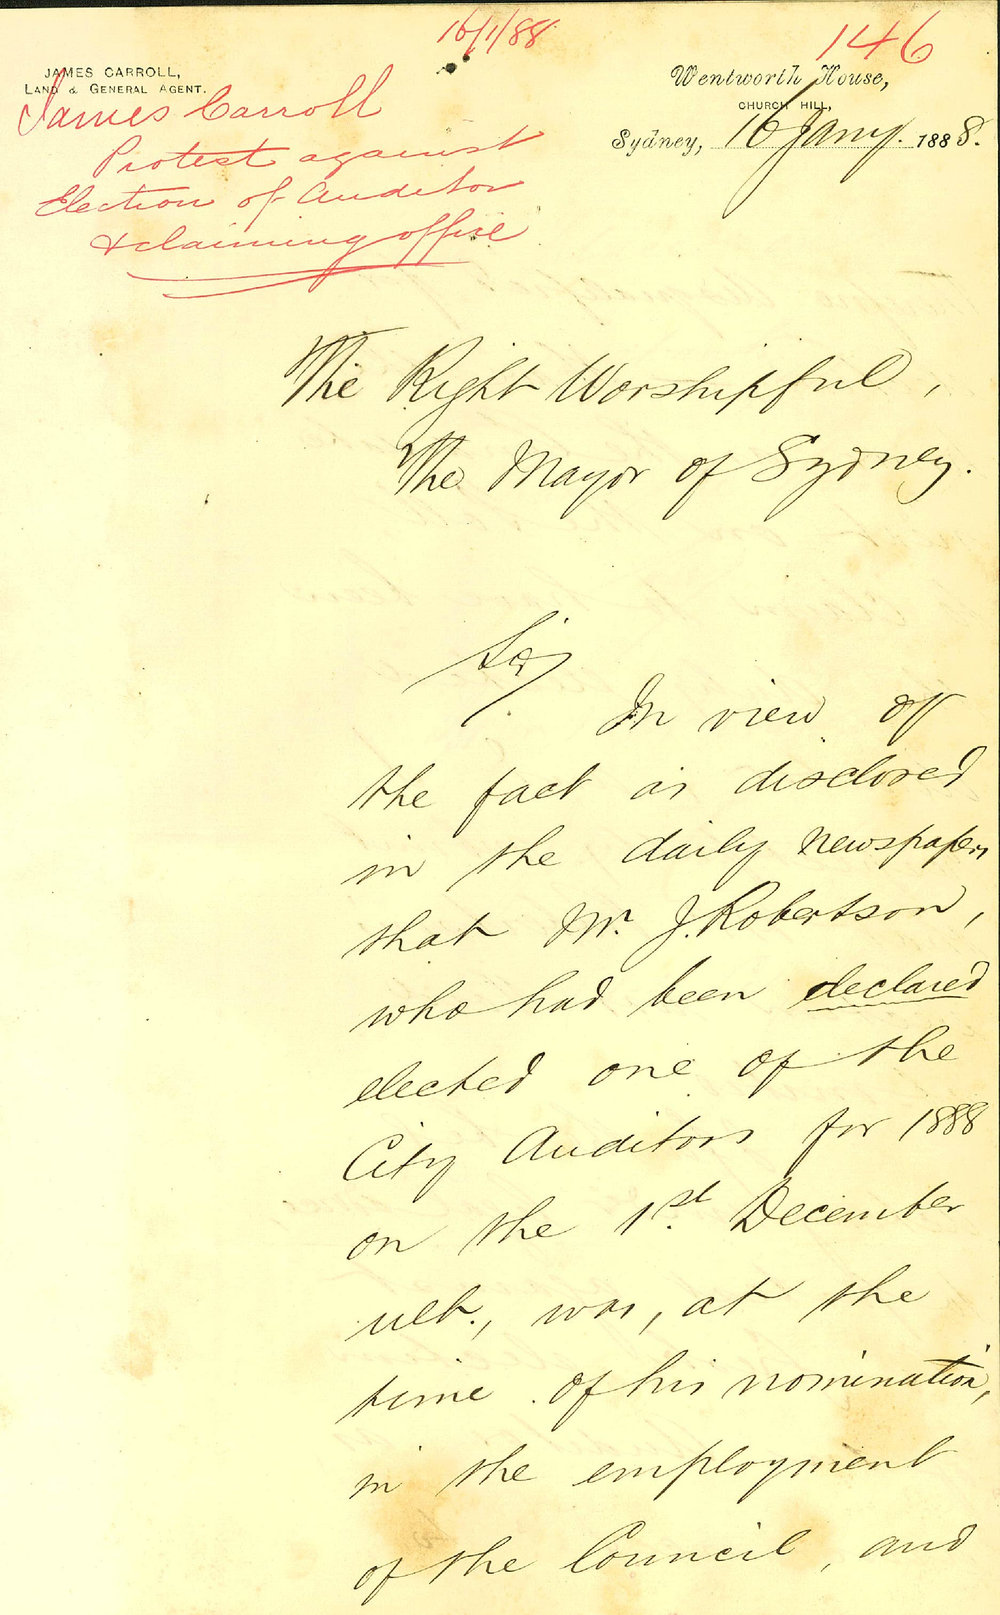 16/1/88
146
JAMES CARROLL,
LAND & GENERAL AGENT.
Wentworth House,
CHURCH HILL,
Sydney, 16 Jany. 1888.
James Carroll
Protest against
Election of Auditor
& claiming office
The Right Worshipful,
The Mayor of Sydney.
Sir,
In view of
the fact as disclosed
in the daily newspapers
that Mr. J. Robertson,
who had been declared
elected one of the
City Auditors for 1888
on the 1st. December
ult., was, at the
time of his nomination,
in the employment
of the Council, and